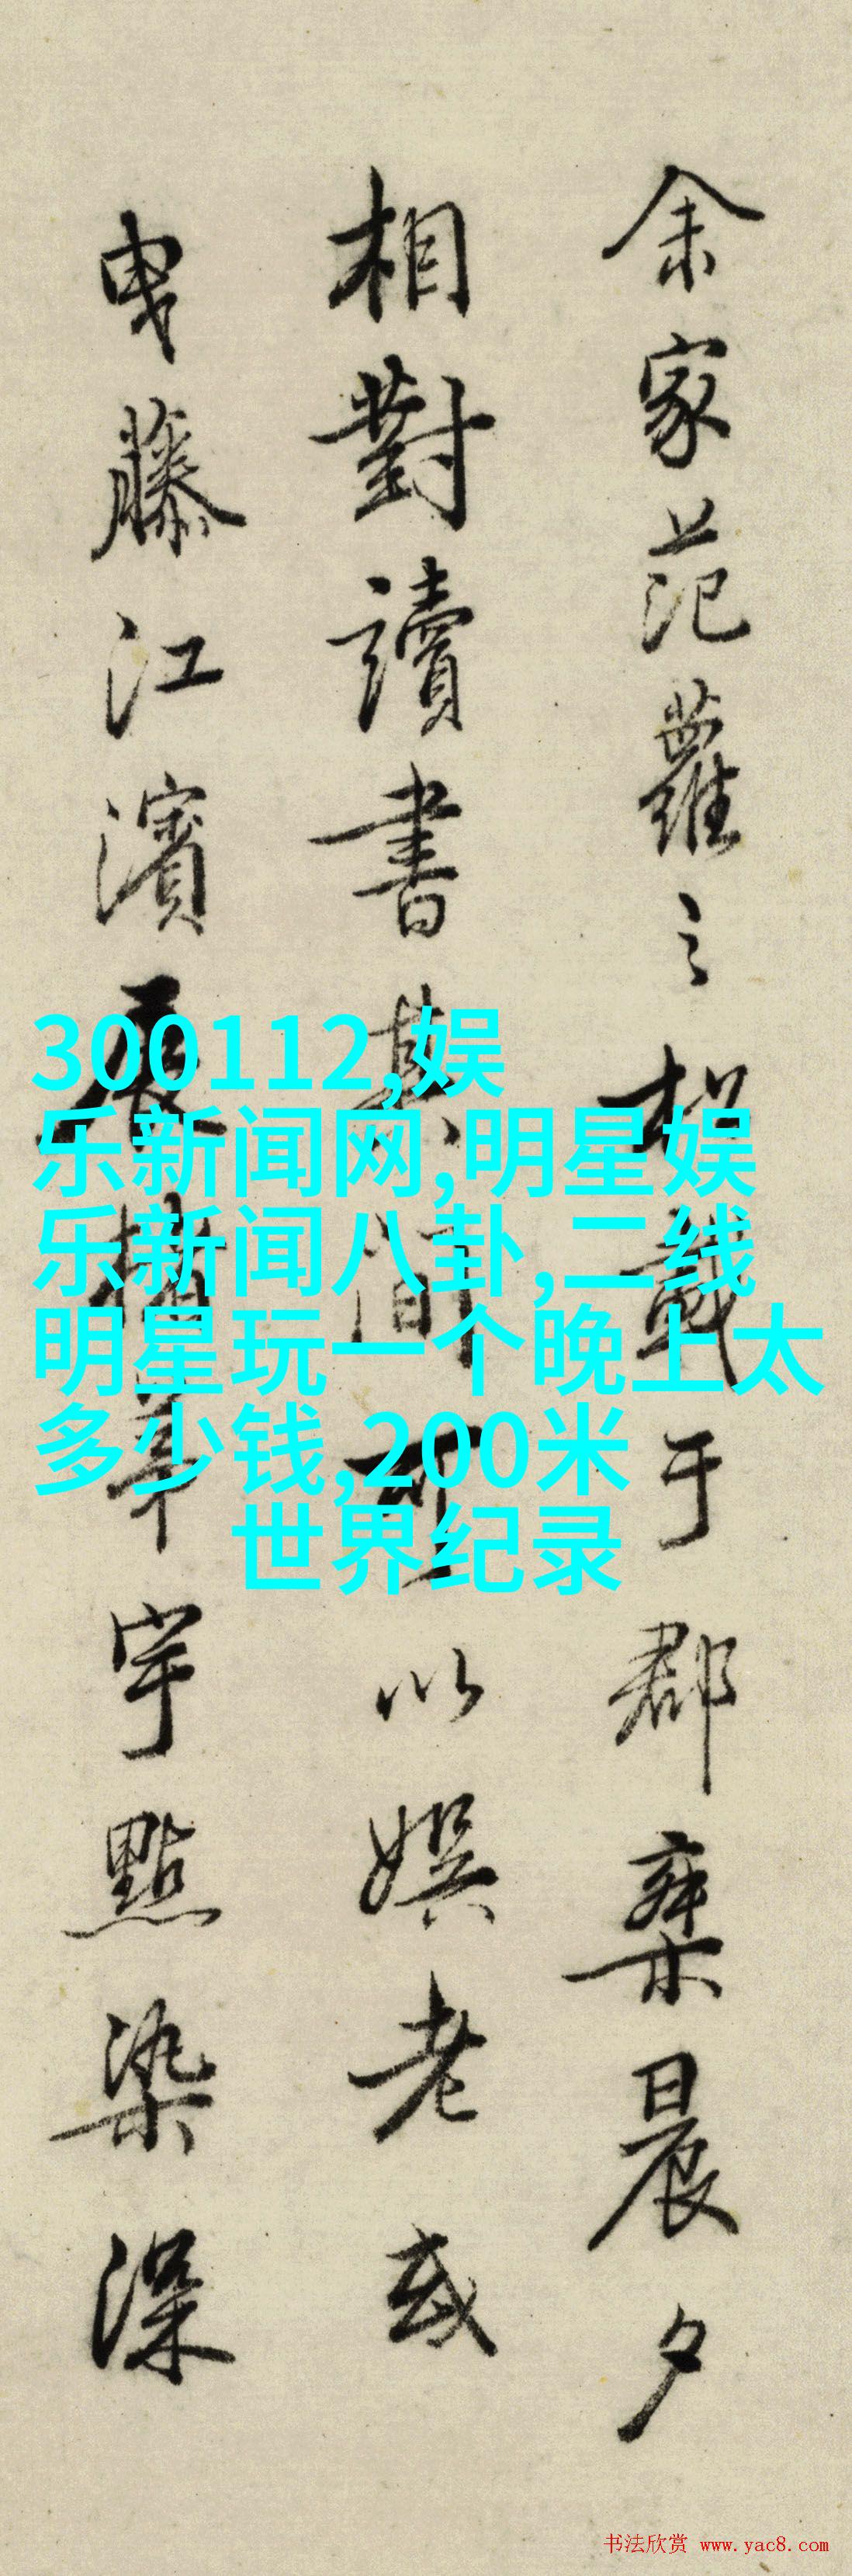 余家范蘿之相戴于郡桒晨夕
相對讀書其間可以娯老或
曳藤江濱展楮華宇點染深
300112,娱
乐新闻网,明星娱
乐新闻八卦,二线
明星玩一个晚上太
多少钱,200米
世界纪录
书法欣赏 www.yac8.com